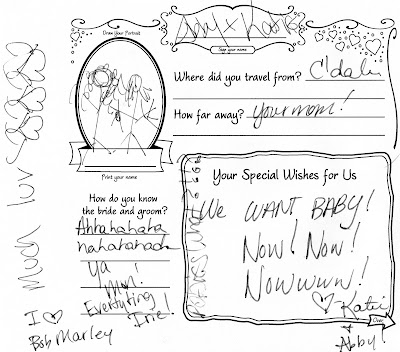 Draw Your Portrait
Sign your name
Where did you travel from? C'dale
How far away? your mom!
Print your name
How do you know
the bride and groom?
Ahhahahaha
hahahahahaah
ya
Mon!
Everyting
Irie!
I ♡
Bob Marley
Much luv
Your Special Wishes for Us
We WANT BABY!
Now! Now!
Nowwww!
♡ Katie
&
Abby!
Over